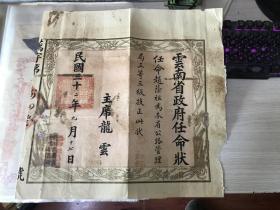 雲南省政府任命狀
任命趙隆祖為本省公路管理
局三等三級技正此狀
主席龍雲
民國三十二年九月十七日
號